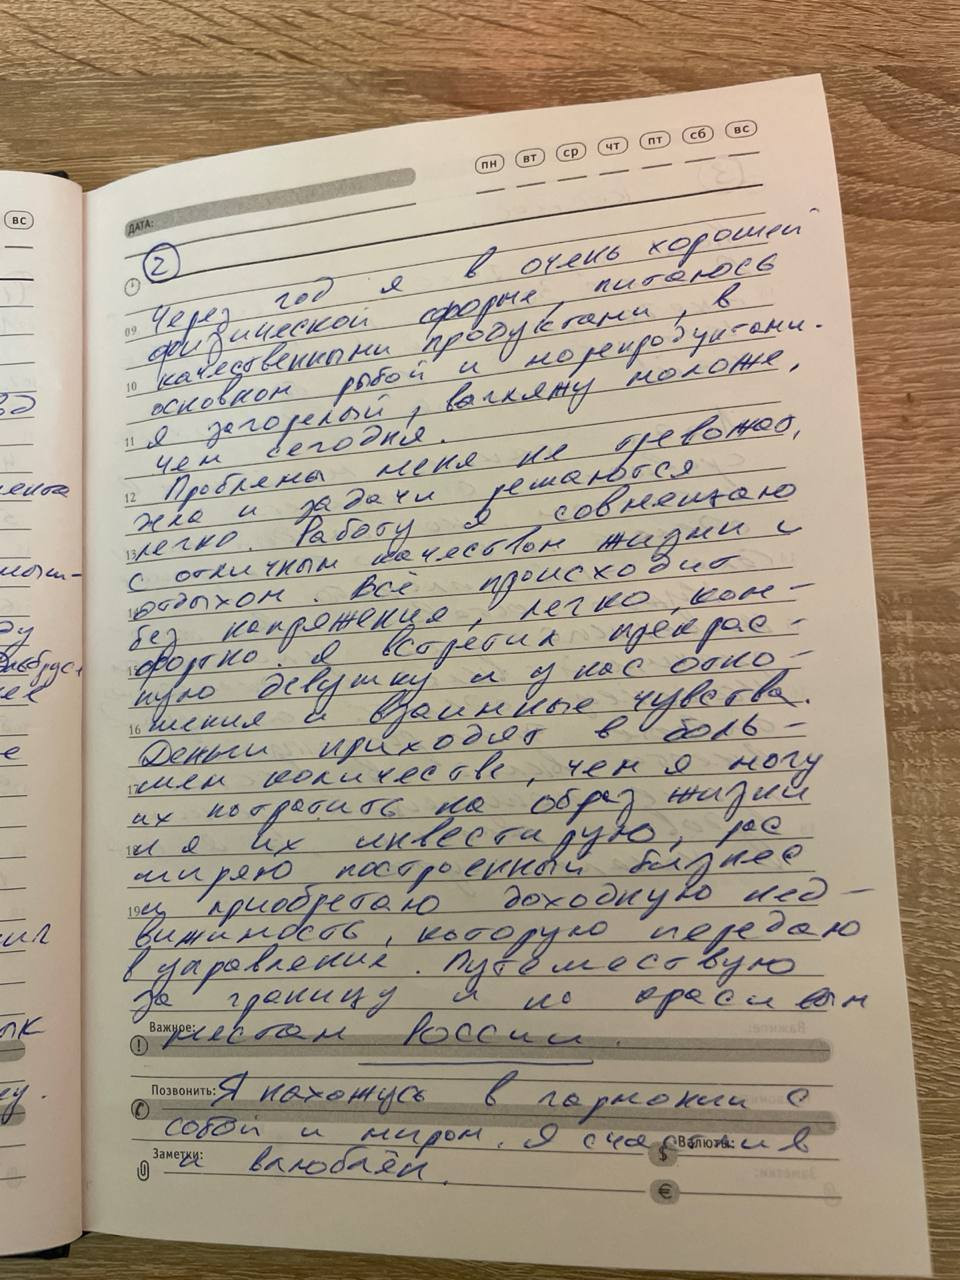 вс
пн вт ср чт пт сб вс
ДАТА:
2
Через год я в очень хорошей
09 физической форме, питаюсь
качественными продуктами, в
10 основном рыбой и морепродуктами.
11 Я загорелый, выгляжу моложе,
чем сегодня.
12 Проблемы меня не тревожат,
жка и задачи решаются
13 легко. Работу я совмещаю
с отличным качеством жизни и
отдыхом. Всё происходит
без напряжения, легко, ком-
15 фортно. Я встретил прекрас-
ную девушку и у нас отно-
16 шения и взаимные чувства.
Деньги приходят в боль-
17 шем количестве, чем я могу
их потратить на образ жизни
18 и я их инвестирую, рас
ширяю построенный бизнес
19 и приобретаю доходную нед-
вижимость, которую передаю
в управление. Путешествую
за границу и по красивым
Важное: местам России.
Позвонить: Я нахожусь в гармонии с
собой и миром. Я счастлив
Валюты:
Заметки: и влюблён.
$
€